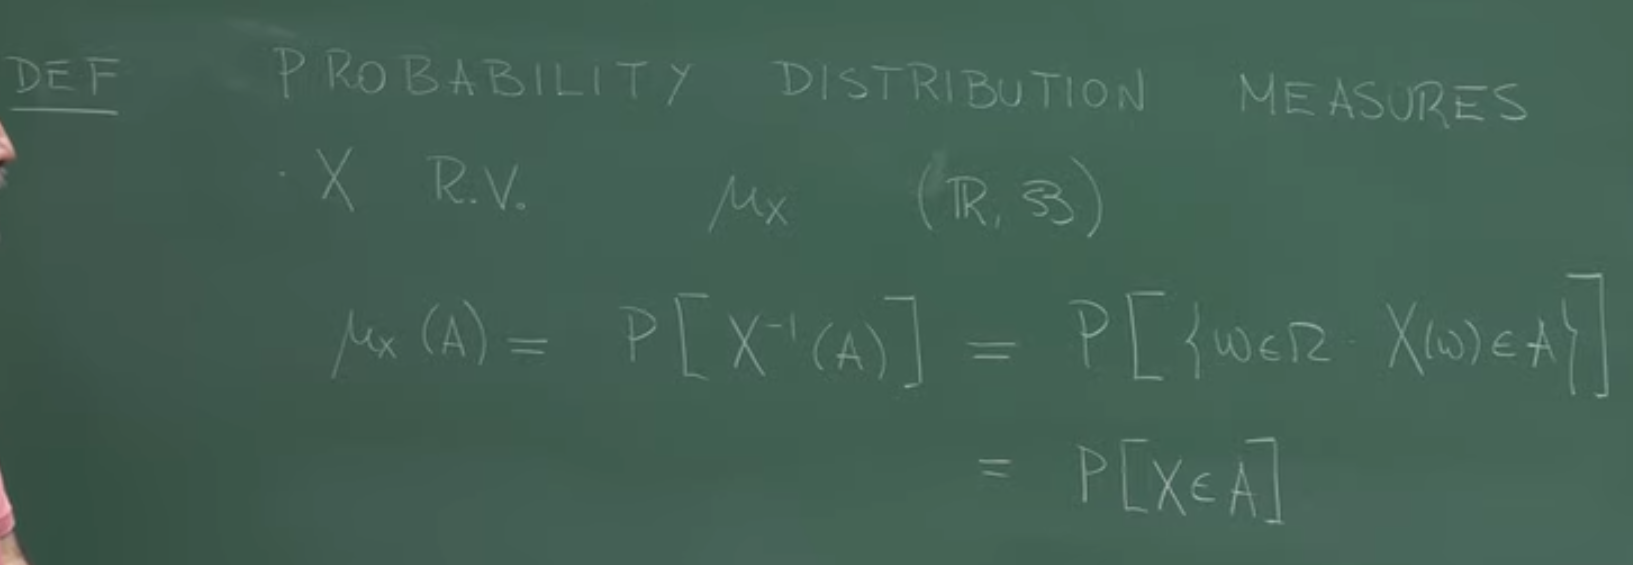 DEF PROBABILITY DISTRIBUTION MEASURES
· X R.V. μ_X (ℝ, ℬ)
μ_X (A) = P[X⁻¹(A)] = P[{ω∈Ω · X(ω)∈A}]
= P[X∈A]